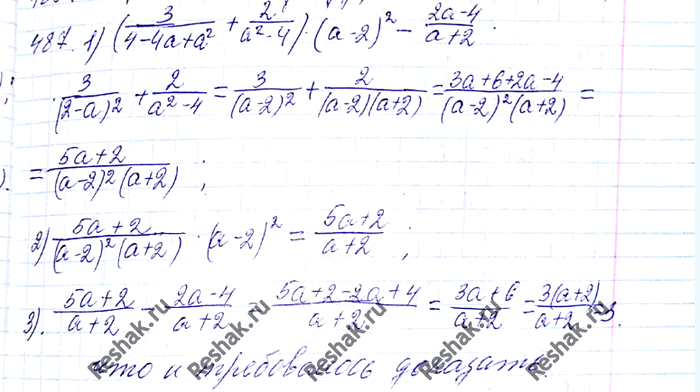 487. 1) (3/(4-4a+a²) + 2/(a²-4)) · (a-2)² - (2a-4)/(a+2).
3/(2-a)² + 2/(a²-4) = 3/(a-2)² + 2/((a-2)(a+2)) = (3a+6+2a-4)/((a-2)²(a+2)) =
= (5a+2)/((a-2)²(a+2)) ;
2) (5a+2)/((a-2)²(a+2)) · (a-2)² = (5a+2)/(a+2) ;
3). (5a+2)/(a+2) - (2a-4)/(a+2) = (5a+2-2a+4)/(a+2) = (3a+6)/(a+2) = 3(a+2)/(a+2) = 3.
что и требовалось доказать.
Reshak.ru Reshak.ru Reshak.ru Reshak.ru Reshak.ru